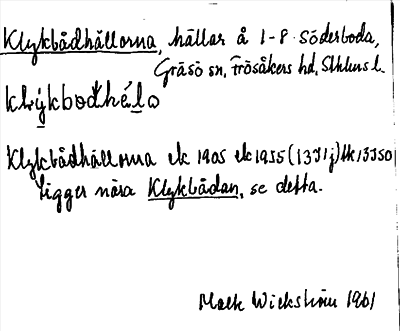 Klykbådhällorna, hällar å 1-8 Söderboda,
Gräsö sn, Frösåkers hd, Sthlms l.
Klykbådhällorna ek 1905 ek 1955 (13I1j) tk 13550
Ligger nära Klykbådan, se detta.
Wickström 1961